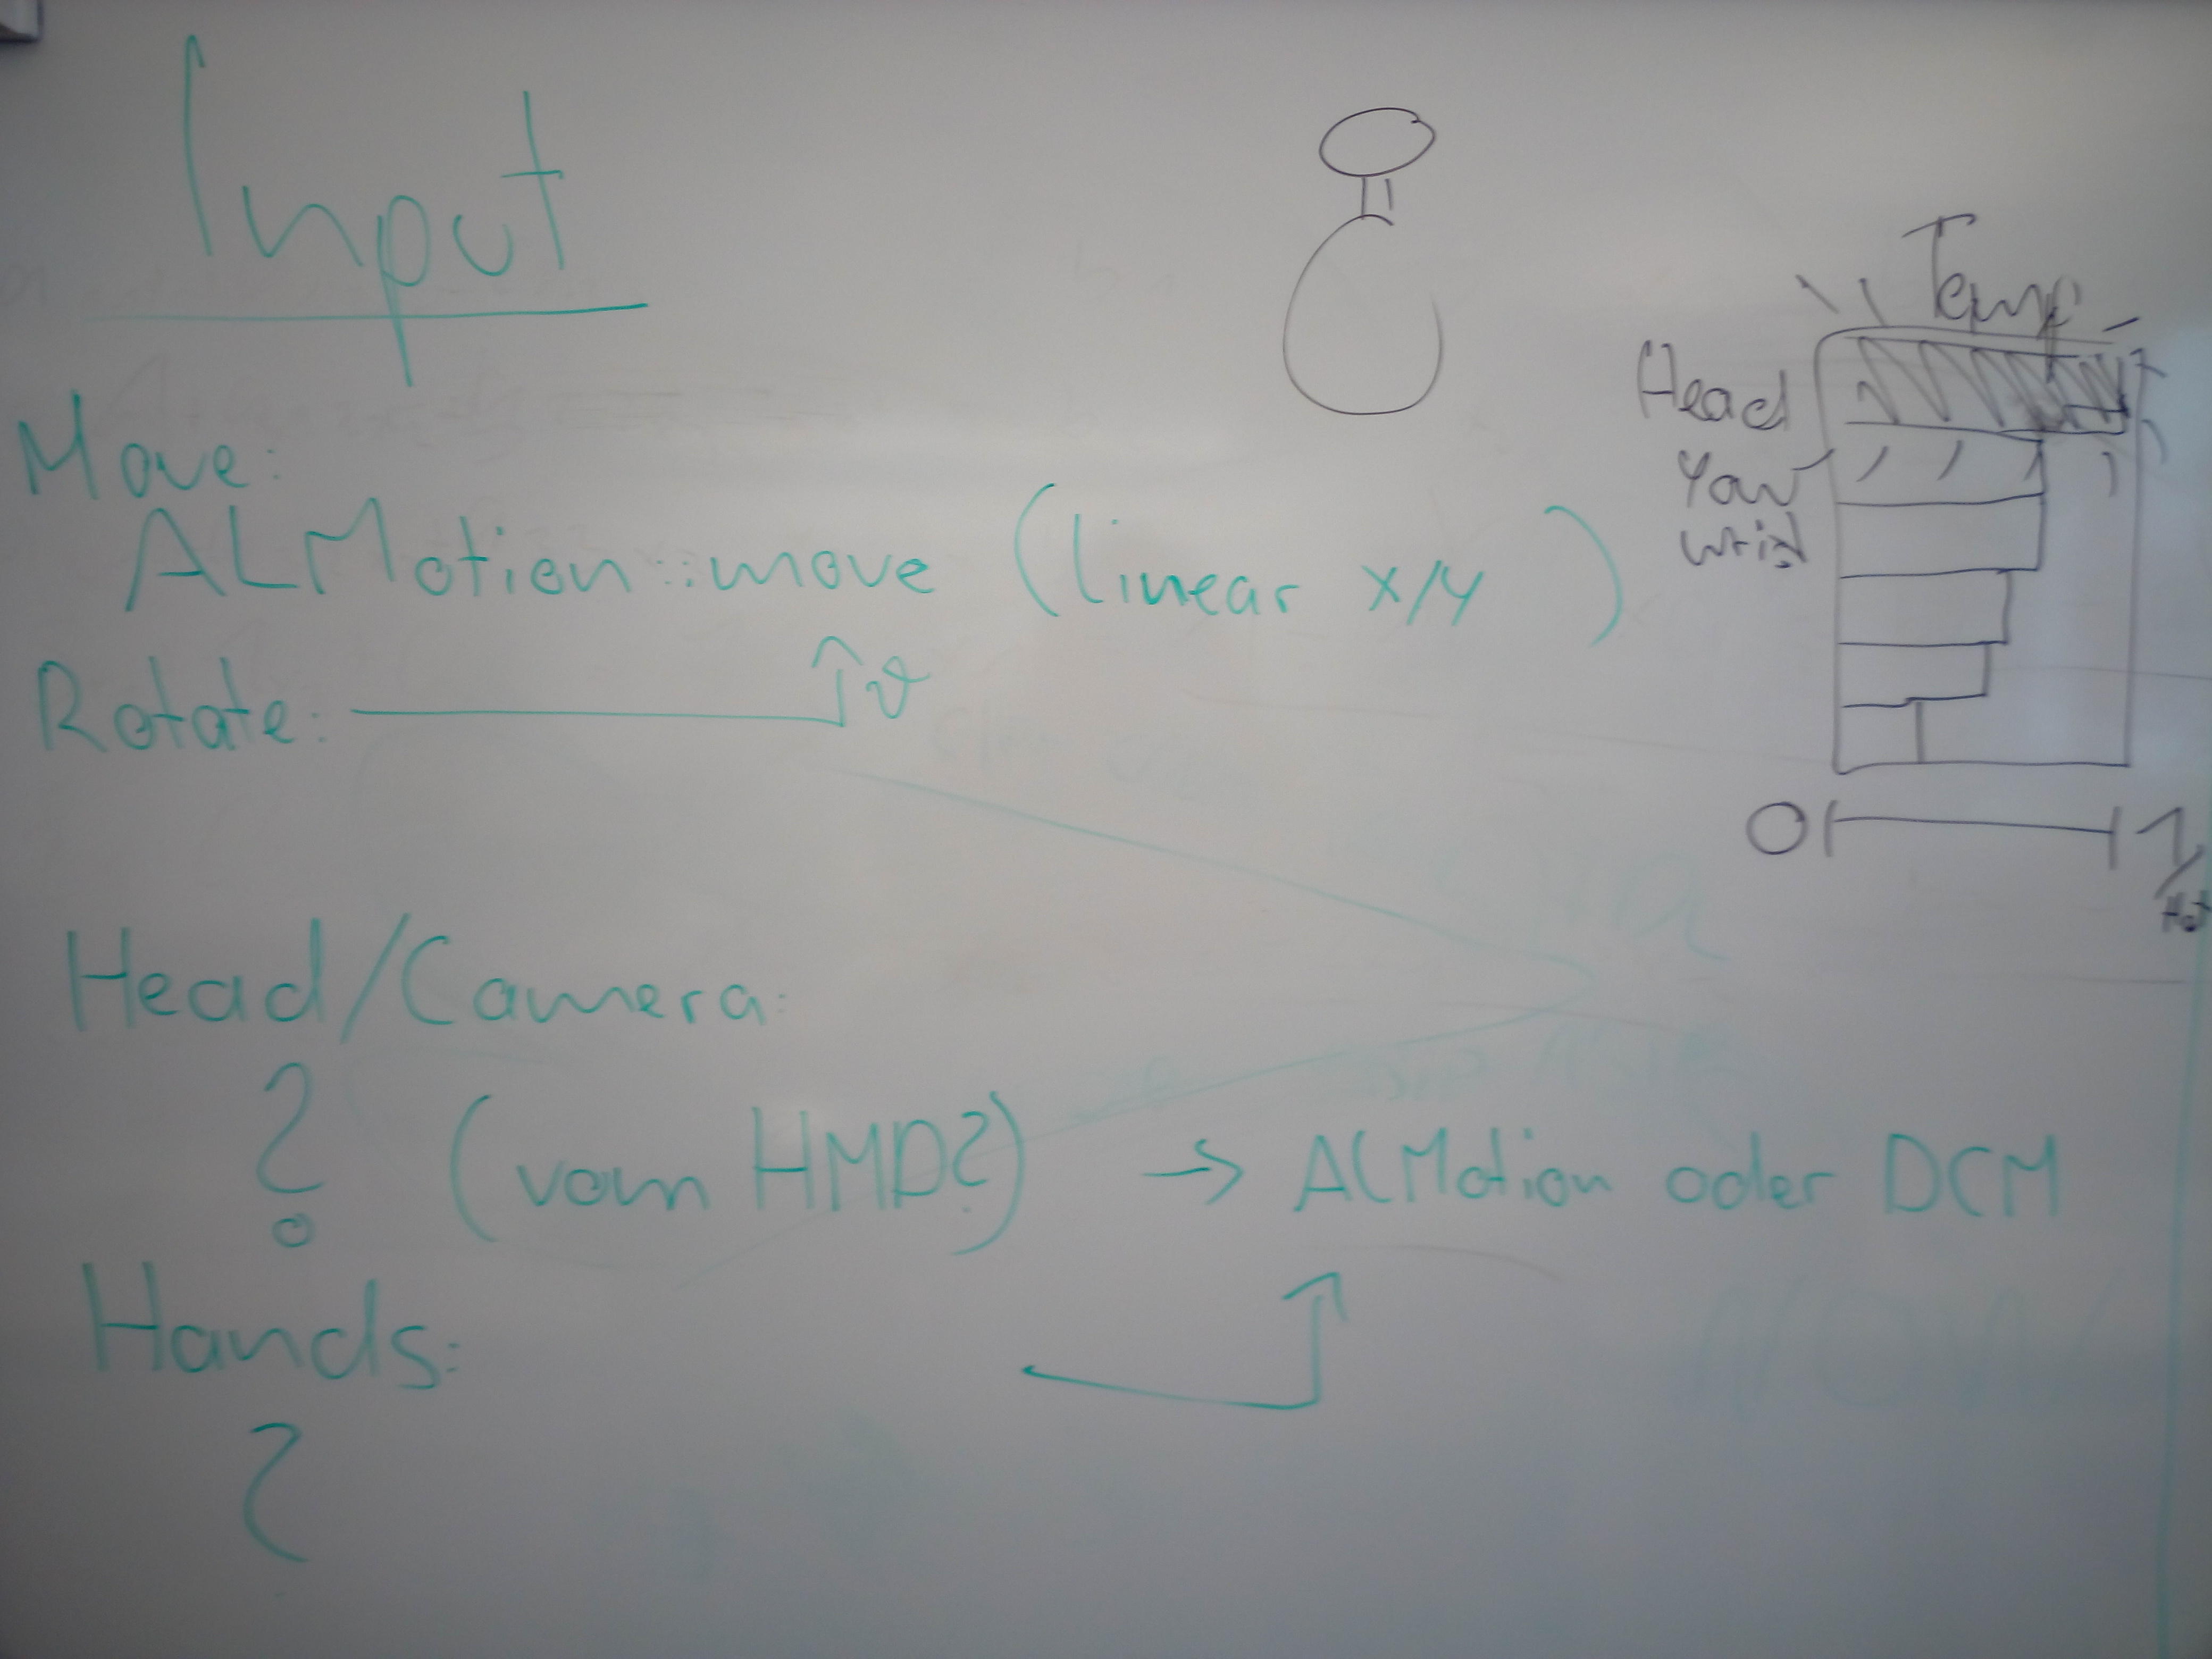 Input
Move:
ALMotion::move (linear x/y )
Rotate: ϑ
Head/Camera:
? (vom HMD?) → ALMotion oder DCM
Hands:
?
Temp
Head
Yaw
Wrist
0 1
Hot